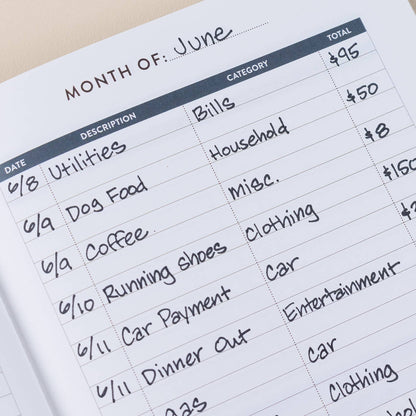 MONTH OF: June
DATE DESCRIPTION CATEGORY TOTAL
6/8 Utilities Bills $95
6/9 Dog Food Household $50
6/9 Coffee Misc. $8
6/10 Running shoes Clothing $150
6/11 Car Payment Car
6/11 Dinner Out Entertainment
Gas Car
Clothing